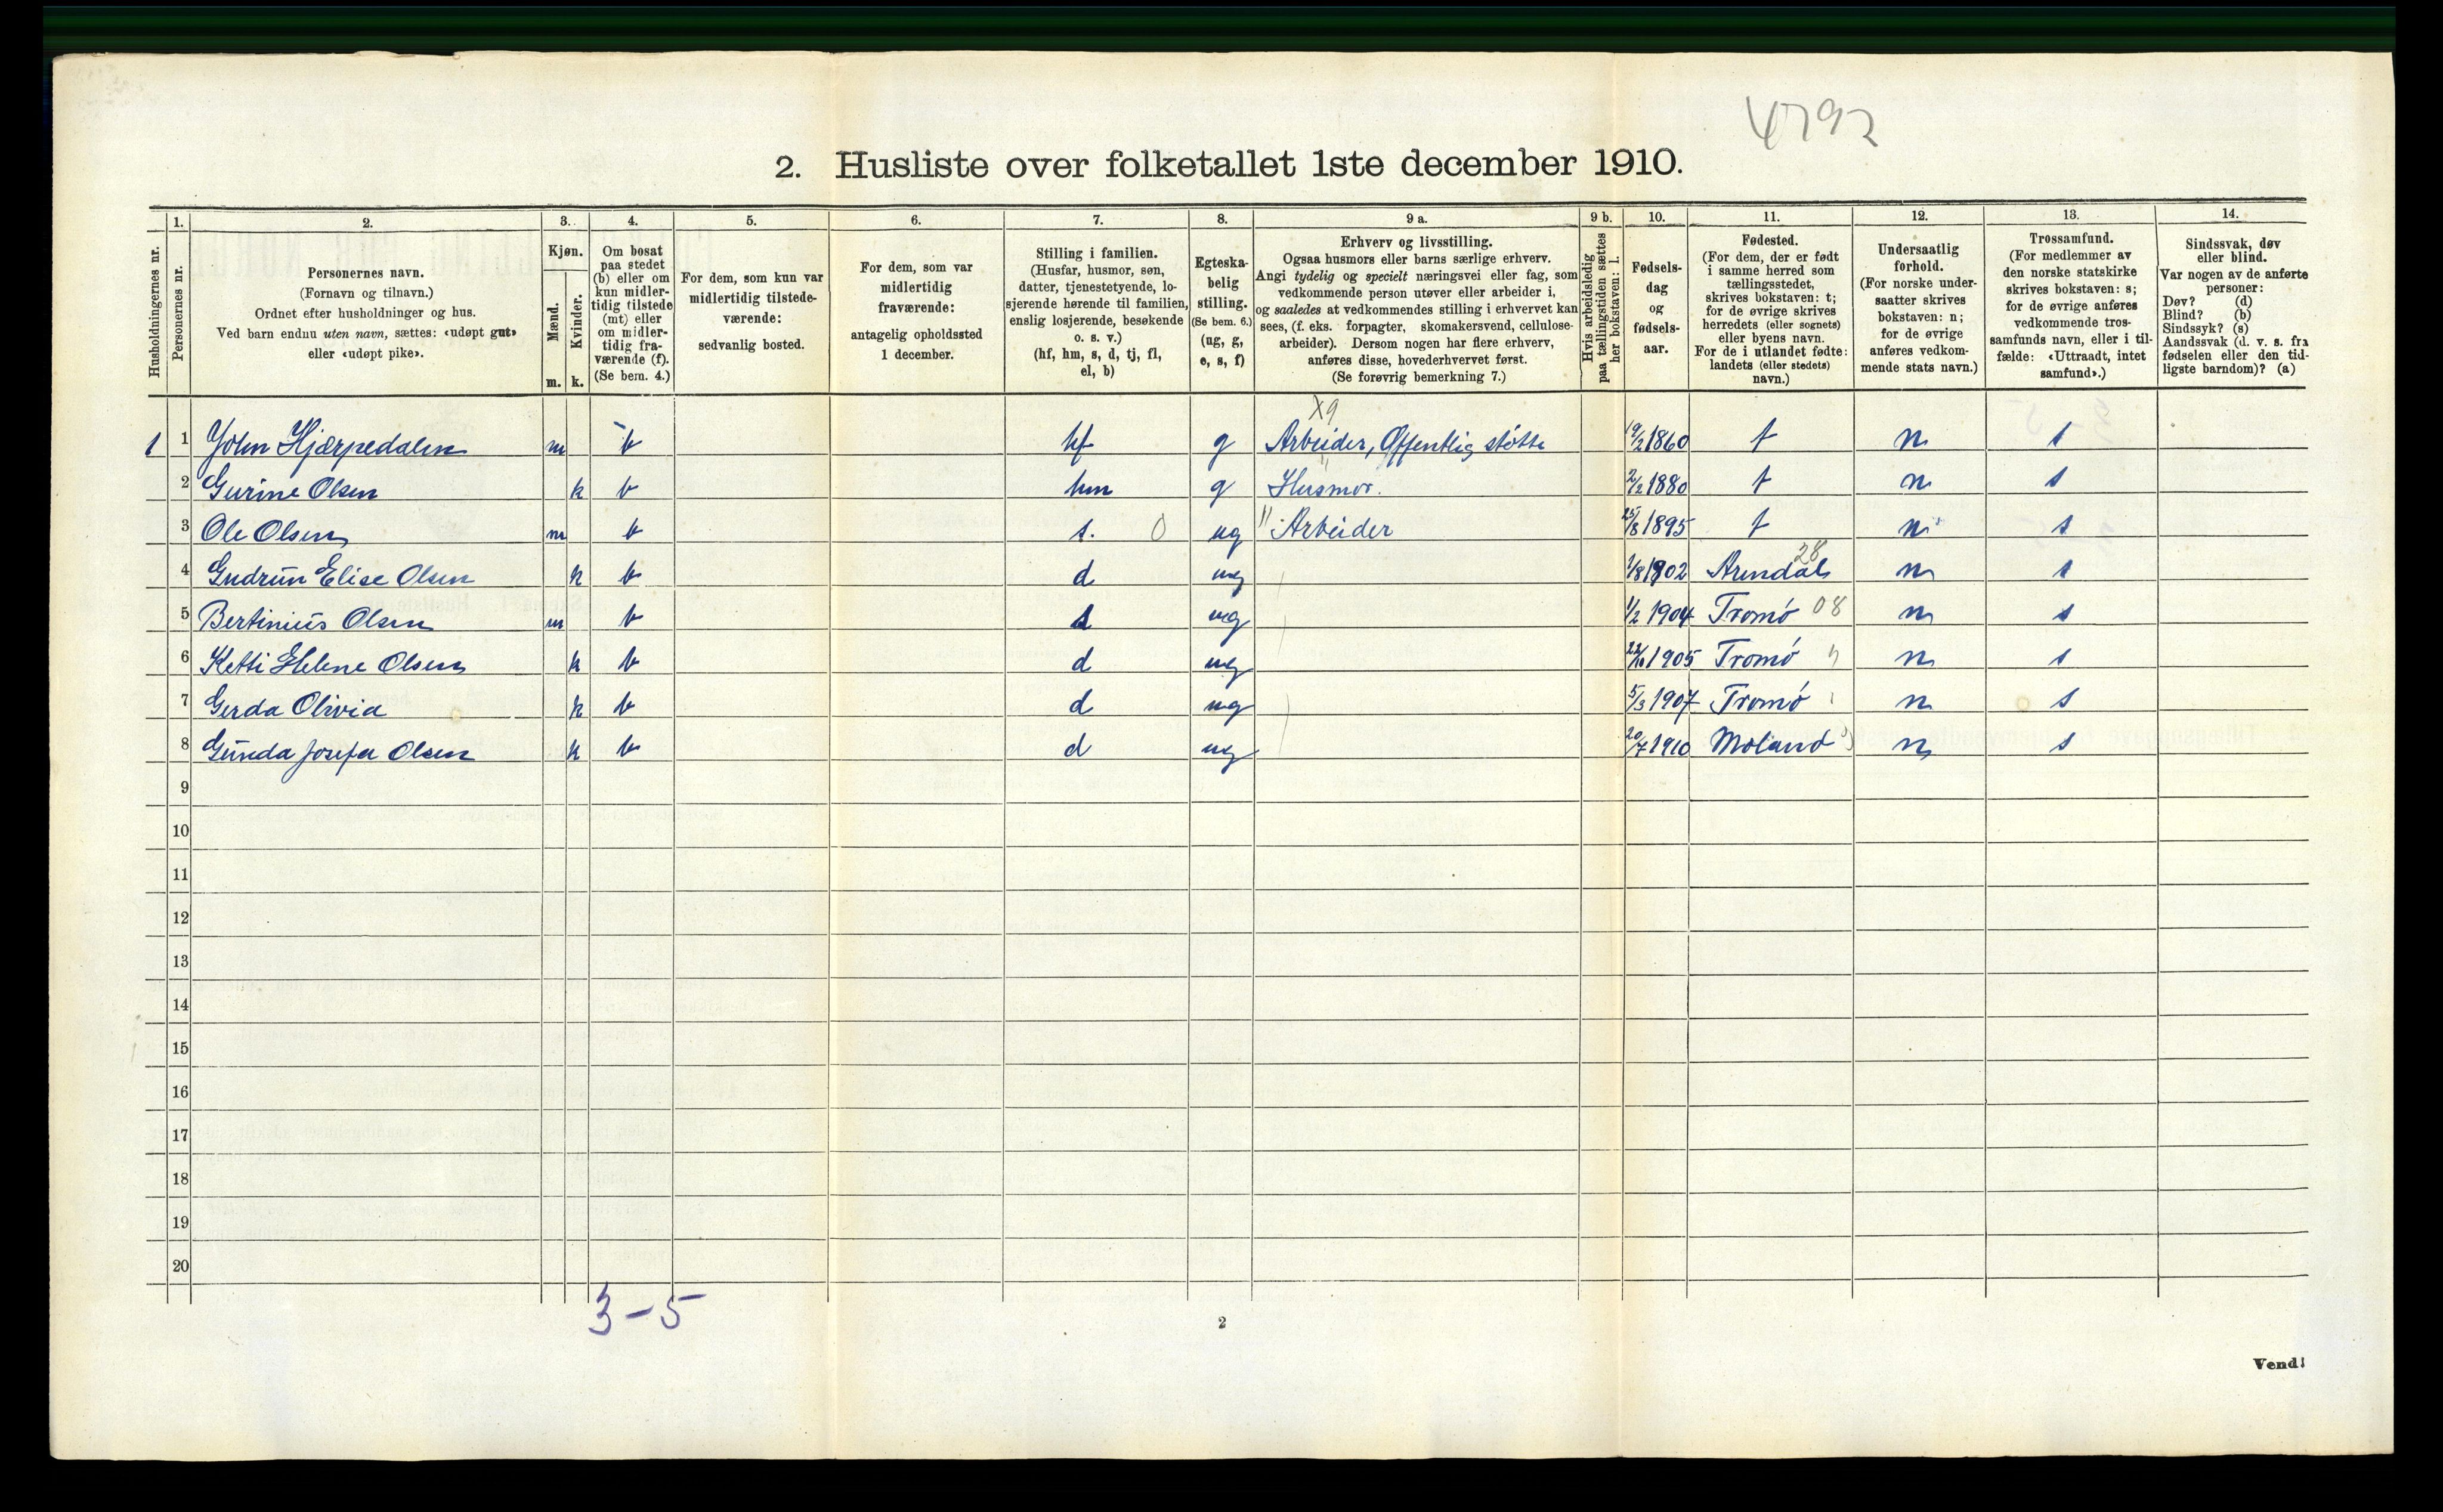 4792
2. Husliste over folketallet 1ste december 1910.
Husholdningernes nr.
1.
Personernes nr.
2.
Personernes navn.
(Fornavn og tilnavn.)
Ordnet efter husholdninger og hus.
Ved barn endnu uten navn, sættes: «udøpt gut»
eller «udøpt pike».
3.
Kjøn.
Mænd.
m.
Kvinder.
k.
4.
Om bosat
paa stedet
(b) eller om
kun midler-
tidig tilstede
(mt) eller
om midler-
tidig fra-
værende (f).
(Se bem. 4.)
5.
For dem, som kun var
midlertidig tilstede-
værende:
sedvanlig bosted.
6.
For dem, som var
midlertidig
fraværende:
antagelig opholdssted
1 december.
7.
Stilling i familien.
(Husfar, husmor, søn,
datter, tjenestetyende, lo-
sjerende hørende til familien,
enslig losjerende, besøkende
o. s. v.)
(hf, hm, s, d, tj, fl,
el, b)
8.
Egteska-
belig
stilling.
(Se bem. 6.)
(ug, g,
e, s, f)
9 a.
Erhverv og livsstilling.
Ogsaa husmors eller barns særlige erhverv.
Angi tydelig og specielt næringsvei eller fag, som
vedkommende person utøver eller arbeider i,
og saaledes at vedkommendes stilling i erhvervet kan
sees, (f. eks. forpagter, skomakersvend, cellulose-
arbeider). Dersom nogen har flere erhverv,
anføres disse, hovederhvervet først.
(Se forøvrig bemerkning 7.)
9 b.
Hvis arbeidsledig
paa tællingstiden sættes
her bokstaven: l.
10.
Fødsels-
dag
og
fødsels-
aar.
11.
Fødested.
(For dem, der er født
i samme herred som
tællingsstedet,
skrives bokstaven: t;
for de øvrige skrives
herredets (eller sognets)
eller byens navn.
For de i utlandet fødte:
landets (eller stedets)
navn.)
12.
Undersaatlig
forhold.
(For norske under-
saatter skrives
bokstaven: n;
for de øvrige
anføres vedkom-
mende stats navn.)
13.
Trossamfund.
(For medlemmer av
den norske statskirke
skrives bokstaven: s;
for de øvrige anføres
vedkommende tros-
samfunds navn, eller i til-
fælde: «Uttraadt, intet
samfund».)
14.
Sindssvak, døv
eller blind.
Var nogen av de anførte
personer:
Døv? (d)
Blind? (b)
Sindssyk? (s)
Aandssvak (d. v. s. fra
fødselen eller den tid-
ligste barndom)? (a)
X9
1 1 John Hjærpedalen m b hf g Arbeider, Offentlig støtte 19/2 1860 t n s
2 Gurine Olsen k b hm g Husmor. 2/2 1880 t n s
3 Ole Olsen m b s. 0 ug Arbeider 25/8 1895 t n s
4 Gudrun Elise Olsen k b d ug 1/8 1902 Arendal 28 n s
5 Bertinius Olsen m b s ug 1/2 1904 Tromö 08 n s
6 Ketti Helene Olsen k b d ug 1905 Tromö n s
7 Gerda Olivia k b d ug 5/3 1907 Tromö n s
8 Gunda Josefa Olsen k b d ug 20/7 1910 Moland n s
9
10
11
12
13
14
15
16
17
18
19
20
3-5
2
Vend!